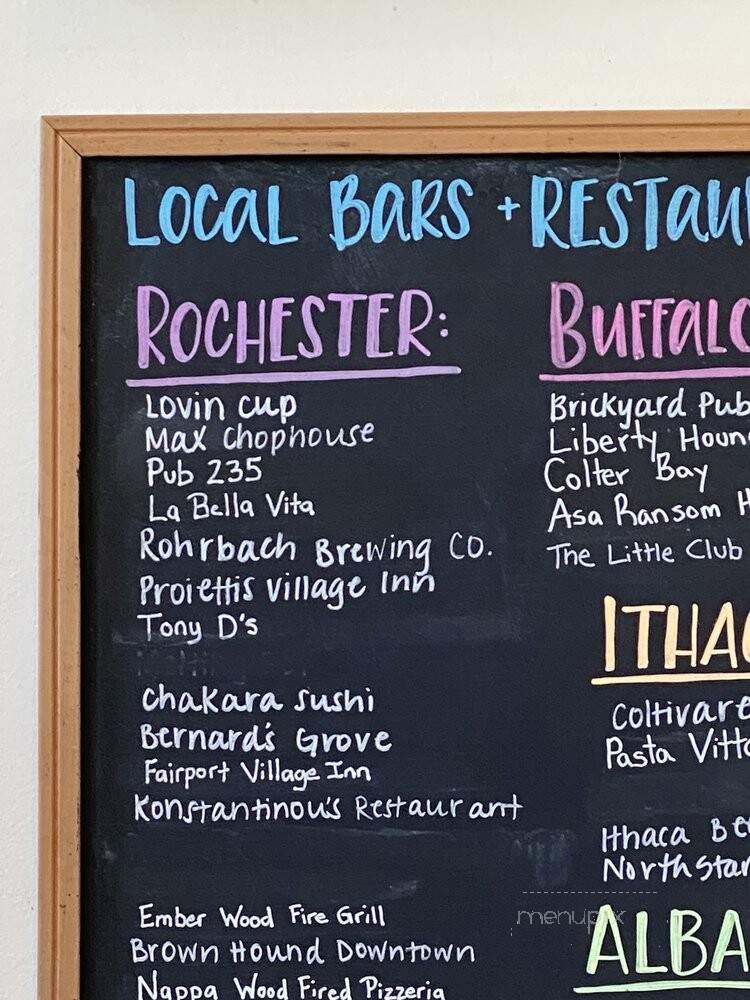 LOCAL BARS + RESTAU
ROCHESTER:
Lovin cup
Max Chophouse
Pub 235
La Bella Vita
Rohrbach Brewing Co.
Proiettis Village Inn
Tony D's
Chakara Sushi
Bernard's Grove
Fairport Village Inn
Konstantinou's Restaurant
Ember Wood Fire Grill
Brown Hound Downtown
Nappa Wood Fired Pizzeria
BUFFALO
Brickyard Pub
Liberty Houn
Colter Bay
Asa Ransom H
The Little Club
ITHAC
Coltivare
Pasta Vitto
Ithaca Bee
North Star
ALBA
menupix